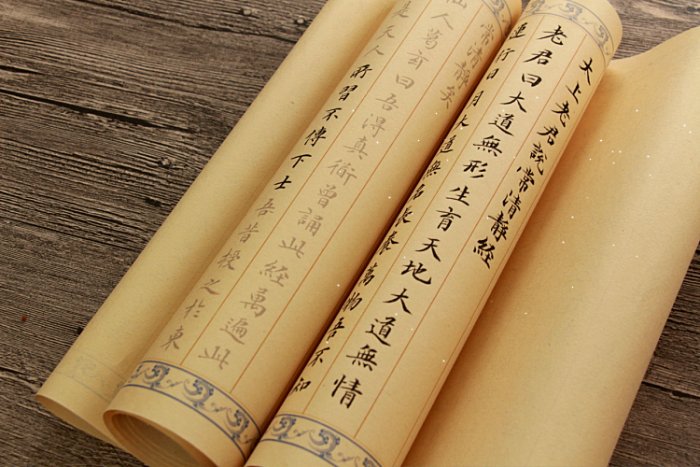 太上老君說常清靜經
老君曰大道無形生育天地大道無情
運行日月大道無名長養萬物吾不知
常清靜矣
仙人葛玄曰吾得真曾誦此經萬遍此
是天人所習不傳下士吾昔授之於東